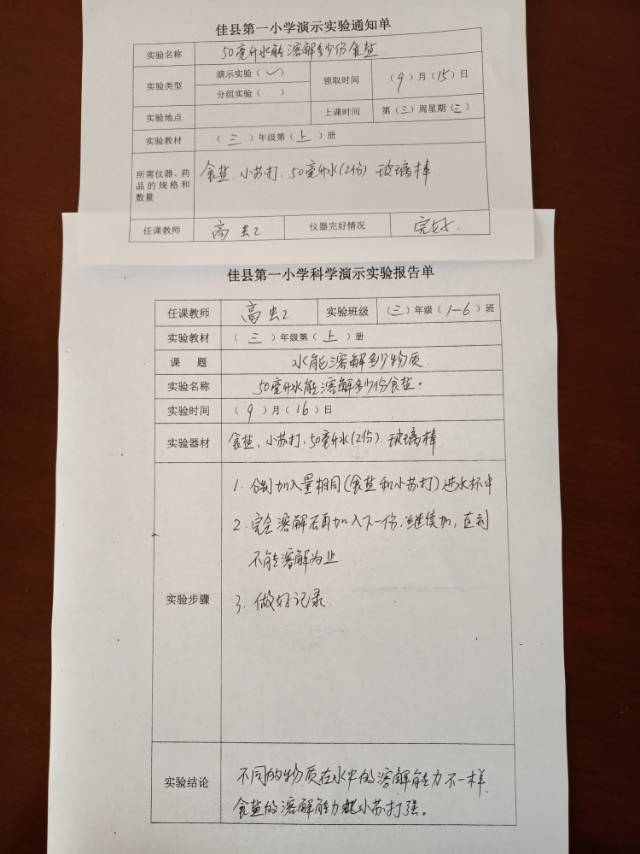 佳县第一小学演示实验通知单
实验名称 50毫升水能溶解多少份食盐
实验类型 演示实验（✓） 领取时间 （9）月（15）日
分组实验（ ）
实验地点 上课时间 第（三）周星期（三）
实验教材 （三）年级第（上）册
所需仪器、药品的规格和数量 食盐、小苏打、50毫升水(2份) 玻璃棒
任课教师 高 仪器完好情况 完好.
佳县第一小学科学演示实验报告单
任课教师 高 实验班级 （三）年级（1-6）班
实验教材 （三）年级第（上）册
课 题 水能溶解多少物质
实验名称 50毫升水能溶解多少份食盐。
实验时间 （9）月（16）日
实验器材 食盐、小苏打、50毫升水(2份)、玻璃棒
实验步骤
1. 分别加入量相同(食盐和小苏打)进水杯中
2. 完全溶解后再加入下一份,继续加,直到
不能溶解为止
3. 做好记录
实验结论 不同的物质在水中的溶解能力不一样
食盐的溶解能力比小苏打强。